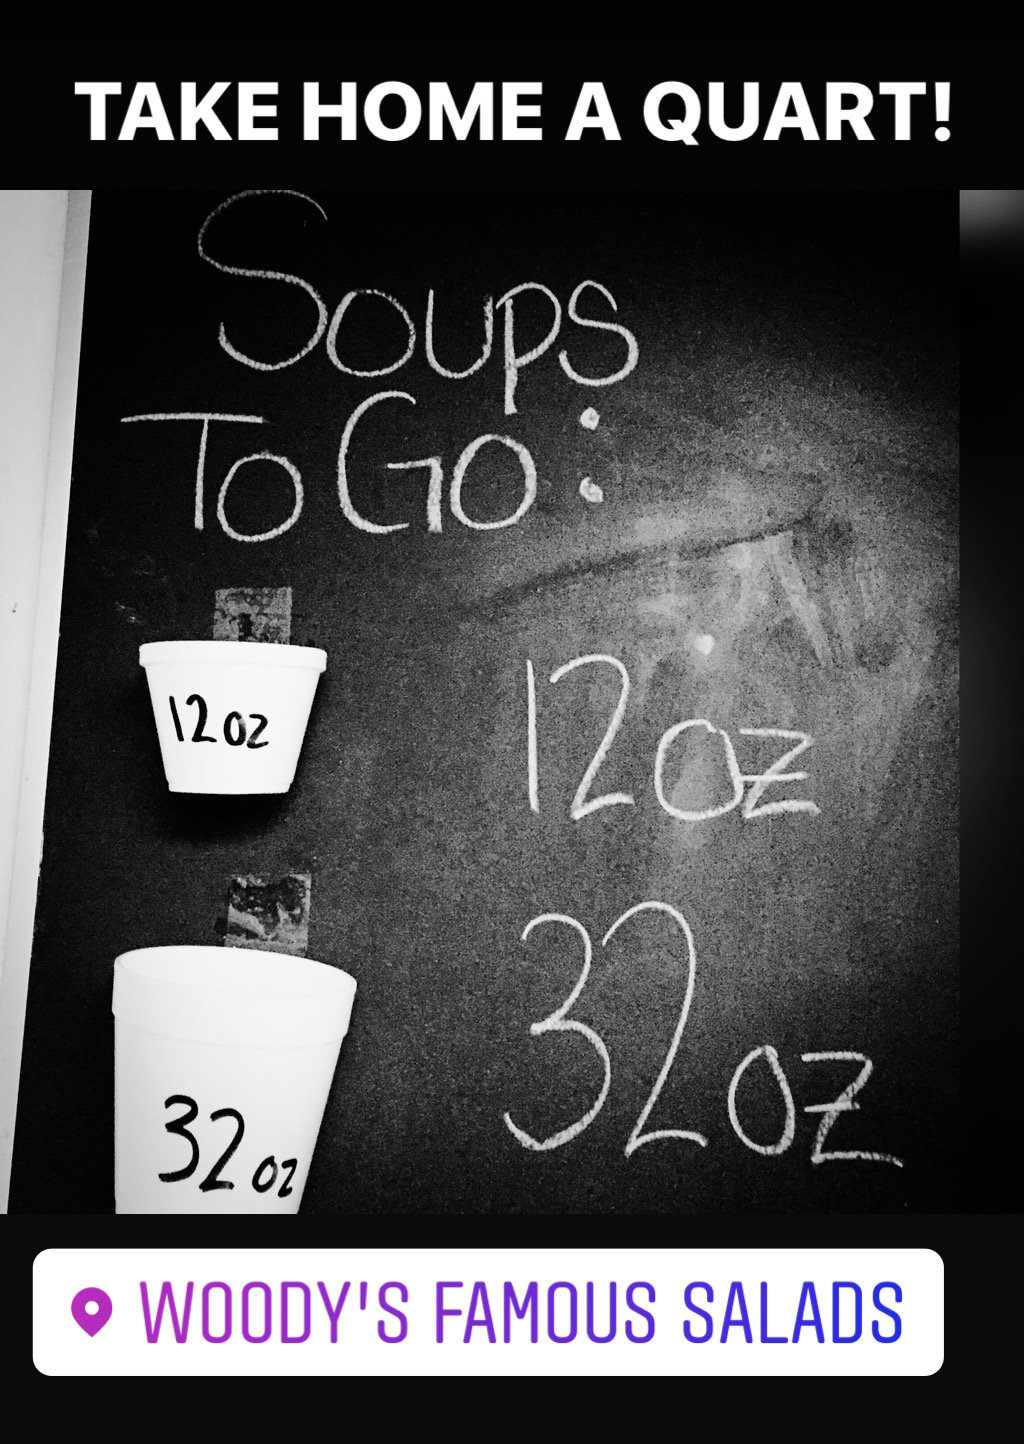 TAKE HOME A QUART!
Soups
To Go:
12 oz
12 oz
32 oz
32 oz
WOODY'S FAMOUS SALADS